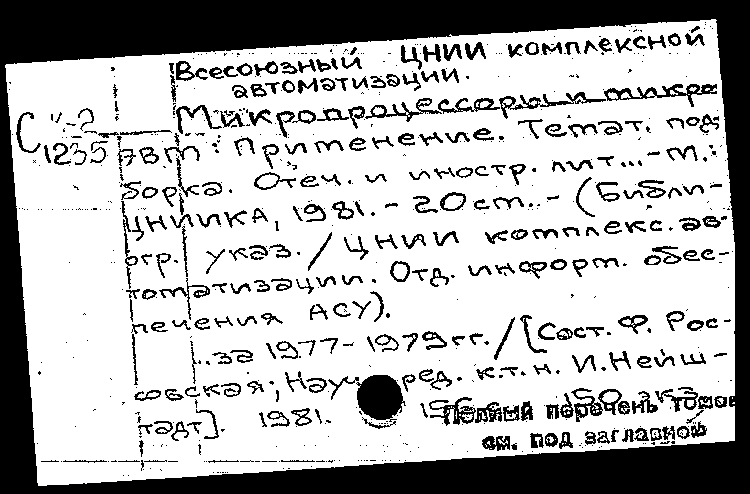 Всесоюзный ЦНИИ комплексной
автоматизации.
Микропроцессоры и микро
С II-2
1235
ЭВМ: Применение. Темат. под-
борка. Отеч. и иностр. лит... - М.:
ЦНИИКА, 1981. - 20 см. - (Библи-
огр. указ. / ЦНИИ комплекс. ав-
томатизации. Отд. информ. обес-
печения АСУ).
...за 1977-1979 гг. / [Сост. Ф. Рос-
совская; Науч. ред. к.т.н. И. Нейш-
тадт]. 1981. 150 экз.
Полный перечень томов
см. под заглавной